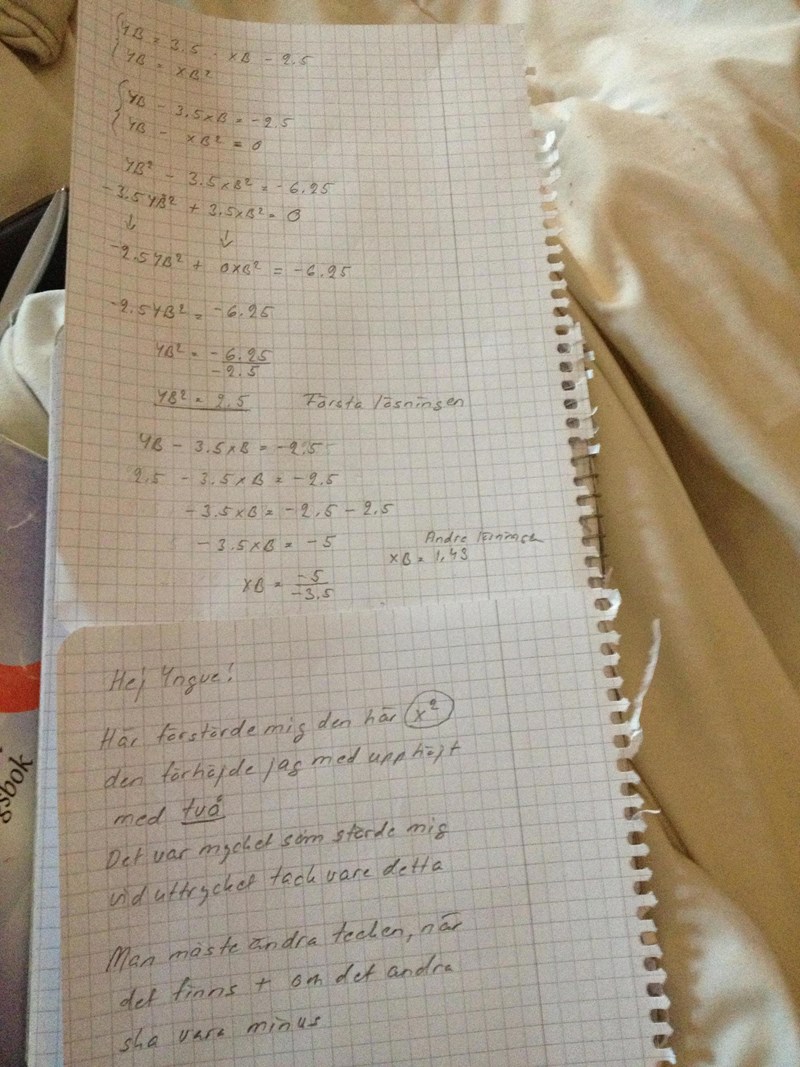 YB = 3.5 · XB - 2.5
YB = XB²
YB - 3.5XB = -2.5
YB - XB² = 0
YB² - 3.5XB² = -6.25
-3.5YB² + 3.5XB² = 0
↓ ↓
-2.5YB² + 0XB² = -6.25
-2.5YB² = -6.25
YB² = -6.25
-2.5
YB² = 2.5 Första lösningen
YB - 3.5XB = -2.5
2.5 - 3.5XB = -2.5
-3.5XB = -2.5 - 2.5
-3.5XB = -5 Andre lösningen
XB = 1,43
XB = -5
-3.5
Hej Yngve!
Här förstörde mig den här x²
den förhöjde jag med upphöjt
med två
Det var mycket som störde mig
vid uttrycket tack vare detta
Man måste ändra tecken, när
det finns + om det andra
ska vara minus
gsbok